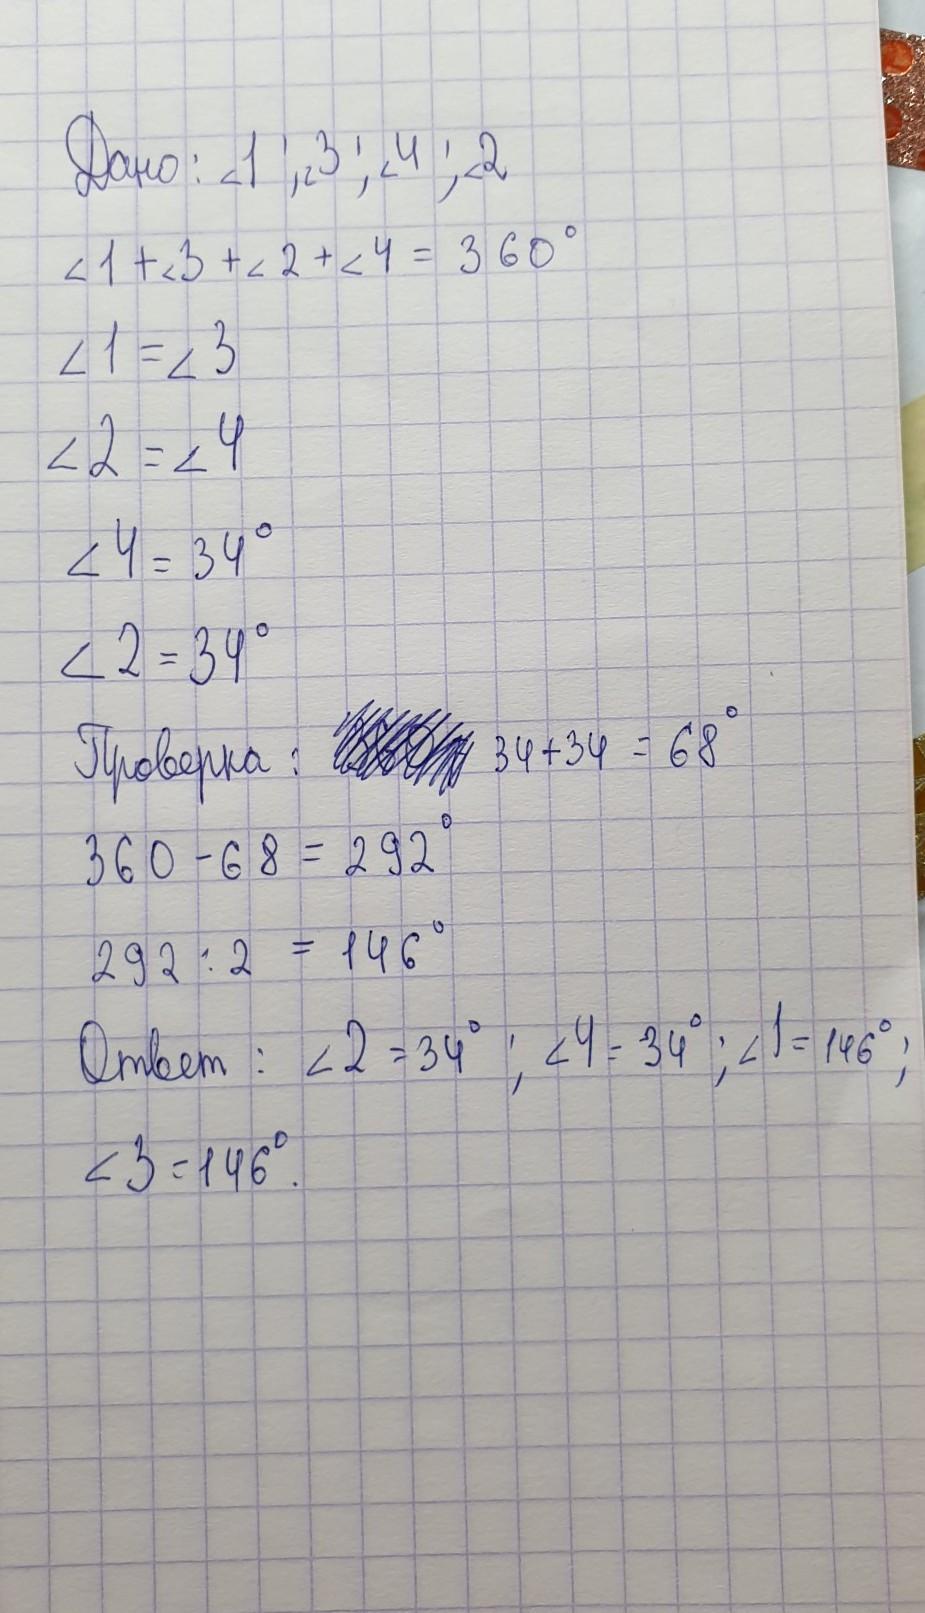 Дано: ∠1; ∠3; ∠4; ∠2
∠1+∠3+∠2+∠4 = 360°
∠1=∠3
∠2=∠4
∠4=34°
∠2=34°
Проверка: 34+34 = 68°
360-68 = 292°
292:2 = 146°
Ответ: ∠2=34°; ∠4=34°; ∠1=146°;
∠3=146°.